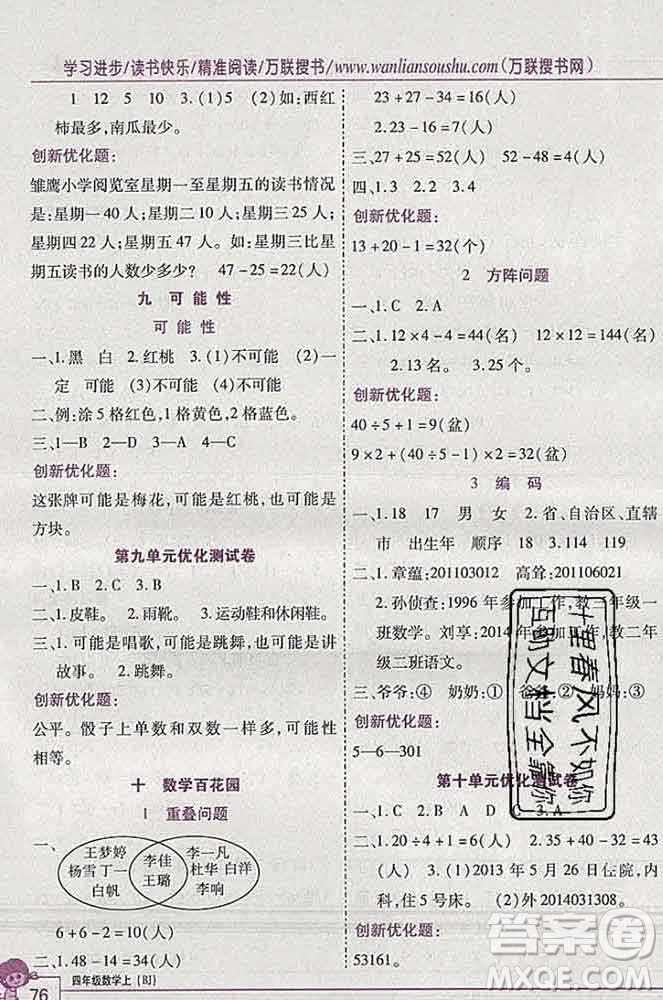 学习进步/读书快乐/精准阅读/万联搜书/www.wanliansoushu.com(万联搜书网)
1 12 5 10 3.(1)5 (2)如:西红
柿最多,南瓜最少。
创新优化题:
雏鹰小学阅览室星期一至星期五的读书情况
是:星期一40人;星期二31人;星期三25人;
星期四22人;星期五47人。如:星期三比星
期五读书的人数少多少? 47-25=22(人)
九 可能性
可能性
一、1.黑 白 2.红桃 3.(1)不可能 (2)一
定 可能 (3)不可能
二、例:涂5格红色,1格黄色,2格蓝色。
三、1—B 2—D 3—A 4—C
创新优化题:
这张牌可能是梅花,可能是红桃,也可能是
方块。
第九单元优化测试卷
一、1.B 2.C 3.B
二、1.皮鞋。 2.雨靴。 3.运动鞋和休闲鞋。
三、1.可能是唱歌,可能是跳舞,可能是讲
故事。 2.跳舞。
创新优化题:
公平。骰子上单数和双数一样多,可能性
相等。
十 数学百花园
1 重叠问题
一、
王梦婷
杨雪 丁一
白帆
李佳
王璐
李一凡
杜华 白洋
李响
6+6-2=10(人)
二、1.48-14=34(人)
23+27-34=16(人)
2.23-16=7(人)
三、27+25=52(人) 52-48=4(人)
四、1.3 2.2 3.4
创新优化题:
13+20-1=32(个)
2 方阵问题
一、1.C 2.A
二、1.12×4-4=44(名) 12×12=144(名)
2.13名。 3.25个。
创新优化题:
40÷5+1=9(盆)
9×2+(9-2)×2=32(盆)
3 编码
一、1.18 17 男 女 2.省、自治区、直辖
市 出生年 顺序 18 3.114 119
二、1.章蕴:201103012 高耸:201106021
2.孙侦查:1996年参加工作,教三年级一
班数学。刘享:2014年参加工作,教二年
级二班语文。
三、爷爷:④ 奶奶:① ② 妈妈:③
创新优化题:
5—6—301
第十单元优化测试卷
一、1.C 2.B A D C 3.A
二、1.20÷4-1=4(人) 2.35+40-32=43
(人) 3.(1)2013年5月26日住院,内
科,住5号床。 (2)外2014031308。
创新优化题:
53161。
十里春风不如你
互助文档全靠你
76
四年级数学上(BJ)
答案圈
MXQE.COM